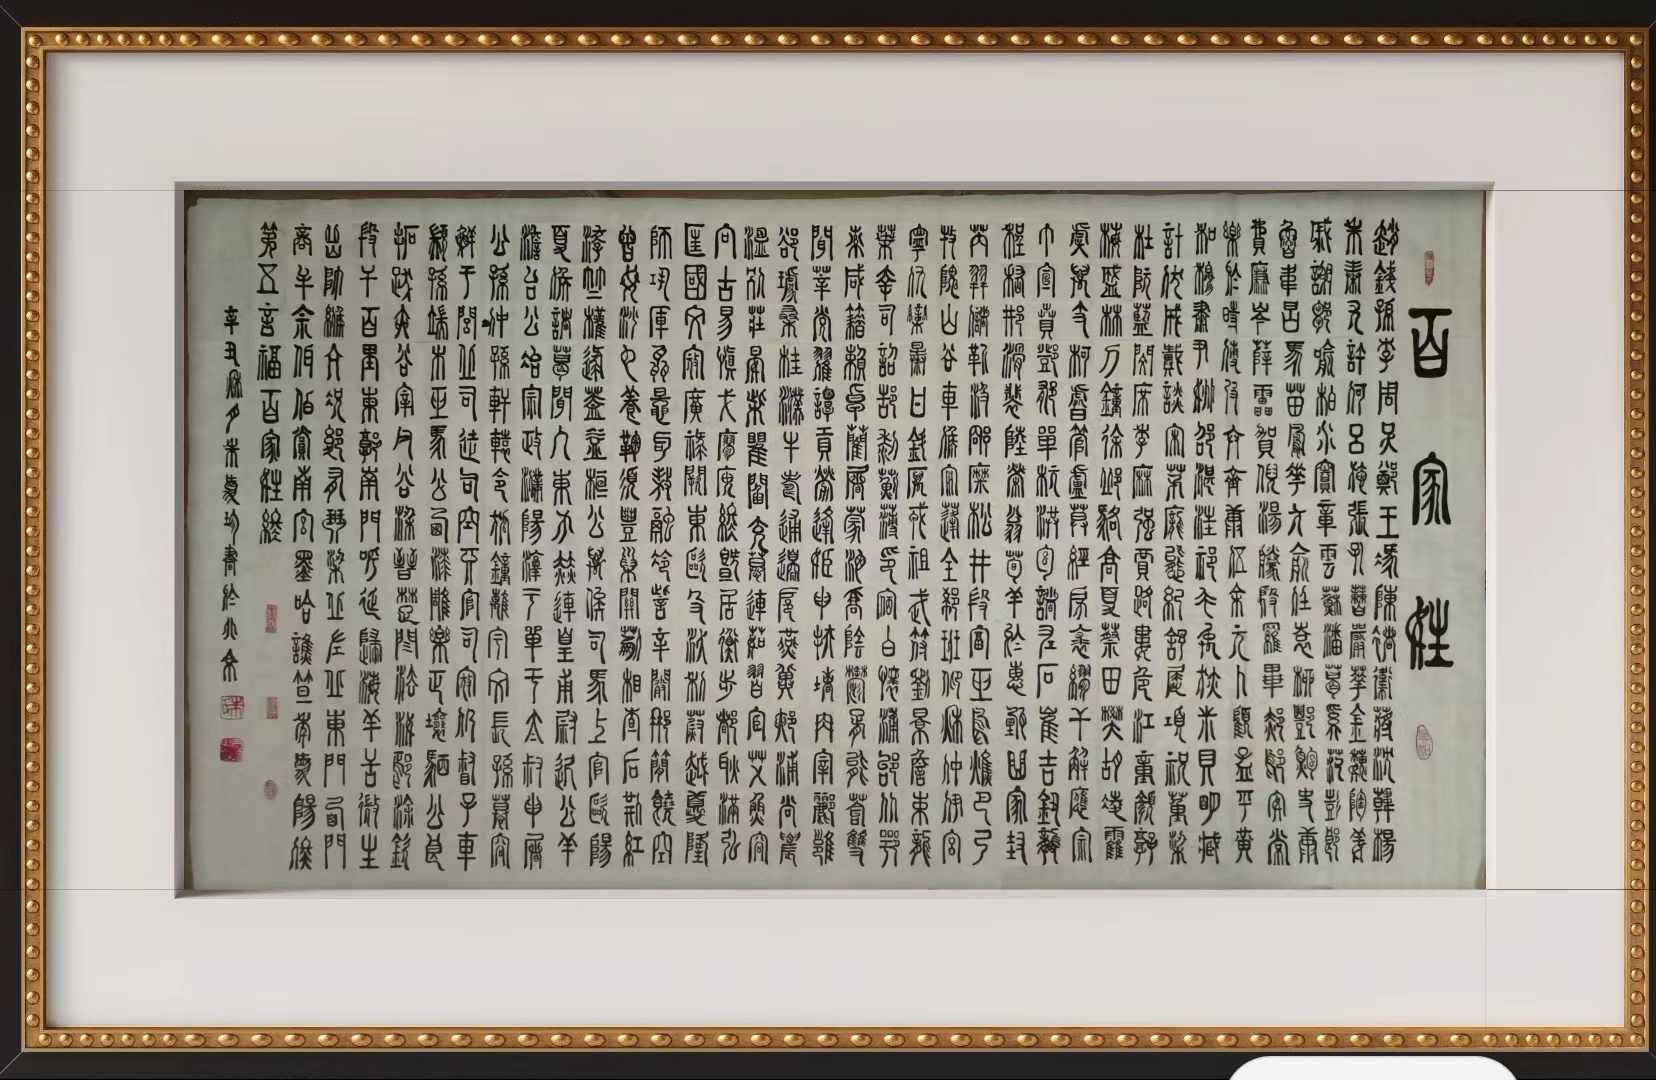 百家姓
趙錢孫李周吳鄭王馮陳褚衛蔣沈韓楊
朱秦尤許何呂施張孔曹嚴華金魏陶姜
戚謝鄒喻柏水竇章雲蘇潘葛奚范彭郎
魯韋昌馬苗鳳花方俞任袁柳酆鮑史唐
費廉岑薛雷賀倪湯滕殷羅畢郝鄔安常
樂於時傅皮卞齊康伍余元卜顧孟平黃
和穆蕭尹姚邵湛汪祁毛禹狄米貝明臧
計伏成戴談宋茅龐熊紀舒屈項祝董梁
杜阮藍閔席季麻強賈路婁危江童顏郭
梅盛林刁鐘徐邱駱高夏蔡田樊胡凌霍
虞萬支柯昝管盧莫經房裘繆干解應宗
丁宣賁鄧郁單杭洪包諸左石崔吉鈕龔
程嵇邢滑裴陸榮翁荀羊於惠甄麴家封
芮羿儲靳汲邴糜松井段富巫烏焦巴弓
牧隗山谷車侯宓蓬全郗班仰秋仲伊宮
寧仇欒暴甘鈄厲戎祖武符劉景詹束龍
葉幸司韶郜黎薊薄印宿白懷蒲邰从鄂
索咸籍賴卓藺屠蒙池喬陰鬱胥能蒼雙
聞莘黨翟譚貢勞逄姬申扶堵冉宰酈雍
郤璩桑桂濮牛壽通邊扈燕冀郟浦尚農
溫別莊晏柴瞿閻充慕連茹習宦艾魚容
向古易慎戈廖庾終暨居衡步都耿滿弘
匡國文寇廣祿闕東歐殳沃利蔚越夔隆
師鞏厙聶晁勾敖融冷訾辛闞那簡饒空
曾毋沙乜養鞠須豐巢關蒯相查后荊紅
游竺權逯蓋益桓公萬俟司馬上官歐陽
夏侯諸葛聞人東方赫連皇甫尉遲公羊
澹台公冶宗政濮陽淳于單于太叔申屠
公孫仲孫軒轅令狐鐘離宇文長孫慕容
鮮于閭丘司徒司空亓官司寇仉督子車
顓孫端木巫馬公西漆雕樂正壤駟公良
拓跋夾谷宰父谷梁晉楚閆法汝鄢涂欽
段干百里東郭南門呼延歸海羊舌微生
岳帥緱亢況後有琴梁丘左丘東門西門
商牟佘佴伯賞南宮墨哈譙笪年愛陽佟
第五言福百家姓終
辛丑秋月朱慶珍書於北京